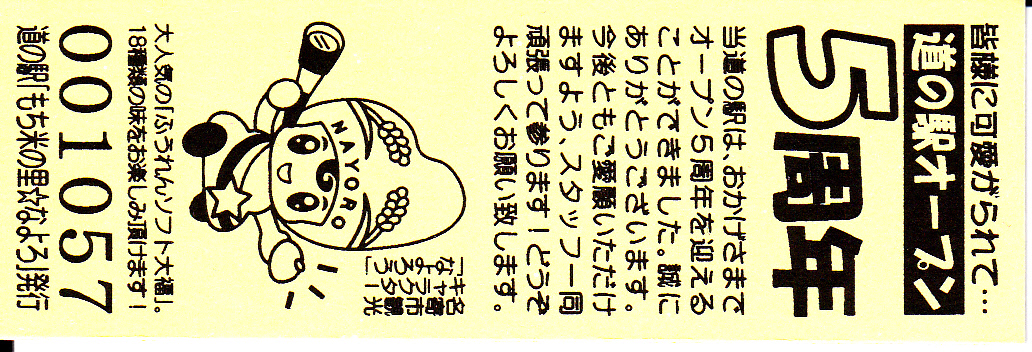 皆様に可愛がられて…
道の駅オープン
5周年
当道の駅は、おかげさまで
オープン5周年を迎える
ことができました。誠に
ありがとうございます。
今後ともご愛顧いただけ
ますよう、スタッフ一同
頑張って参ります！どうぞ
よろしくお願い致します。
NAYORO
名寄市観光
キャラクター
「なよろう」
大人気の「ふうれんソフト大福」。
18種類の味をお楽しみ頂けます！
001057
道の駅「もち米の里☆なよろ」発行